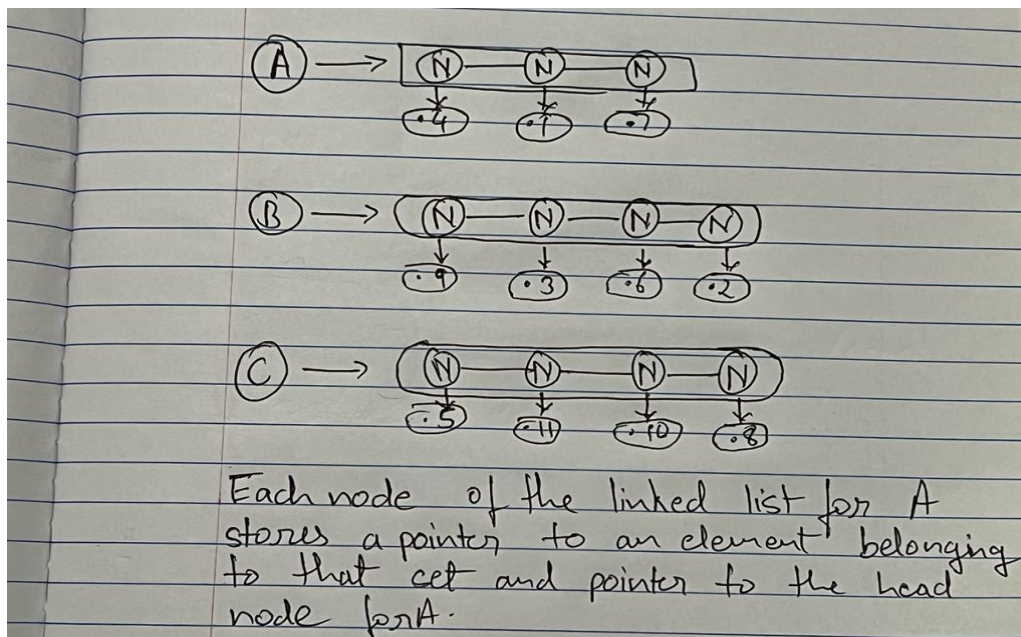 A → N N N
.4 .1 .7
B → N N N N
.9 .3 .6 .2
C → N N N N
.5 .11 .10 .8
Each node of the linked list for A
stores a pointer to an element belonging
to that cet and pointer to the head
node for A.